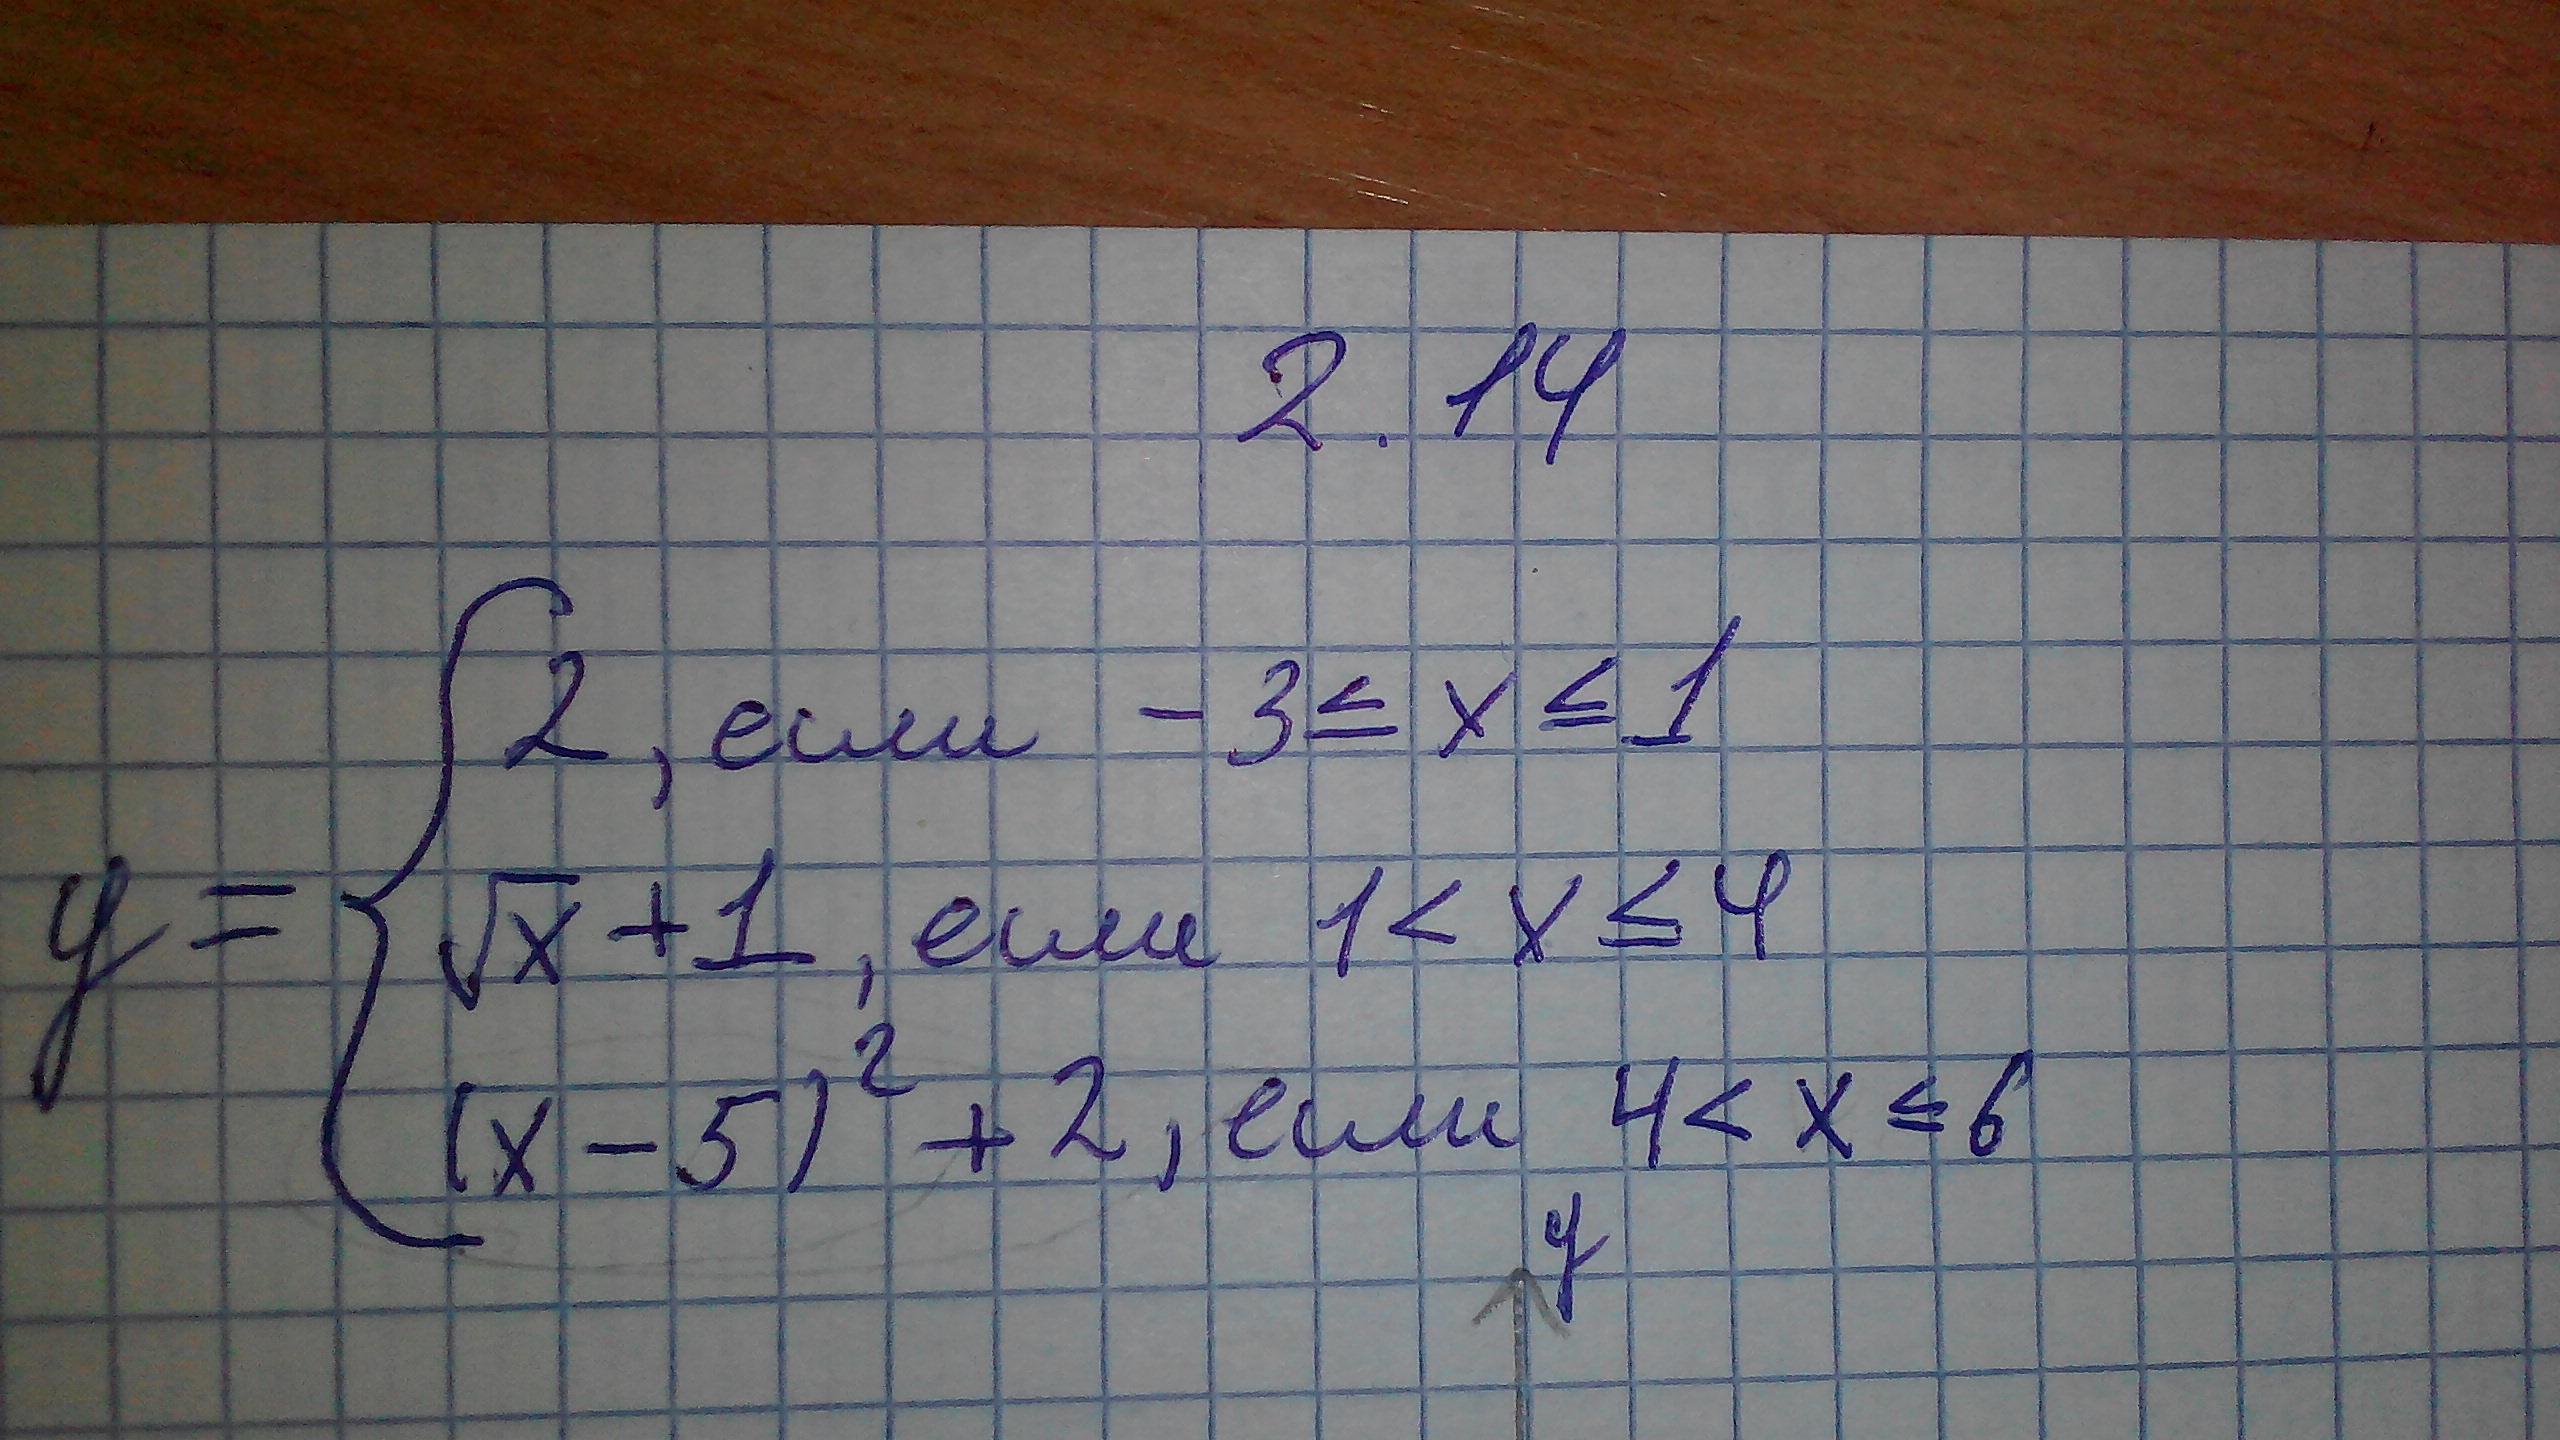 2.14
2, если -3 ≤ x ≤ 1
y = { √x + 1, если 1 < x ≤ 4
(x - 5)² + 2, если 4 < x ≤ 6
y